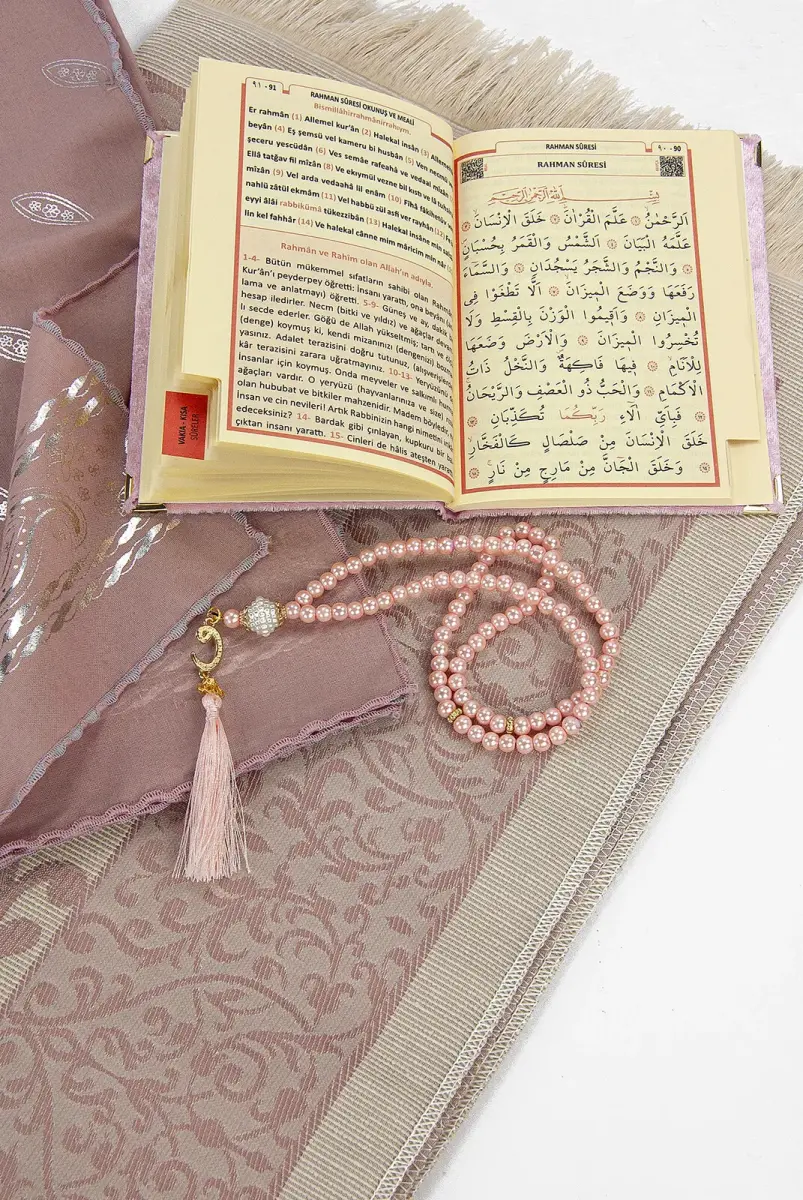 ٩١ - 91
RAHMAN SÛRESİ OKUNUŞ VE MEALİ
Bismillâhirrahmânirrahıym.
Er rahmân (1) Allemel kur'ân (2) Halekal insân (3)
beyân (4) Eş şemsü vel kameru bi husbân (5) Ven
şeceru yescüdân (6) Ves semâe rafeahâ ve vedaal
Ellâ tatğav fil mîzân (8) Ve ekıymül vezne bil kıstı ve lâ
mîzân (9) Vel arda vedaahâ lil enâm (10) Fîhâ
nahlü zâtül ekmâm (11) Vel habbü zül asfi ver rayhân (12)
eyyi âlâi rabbikümâ tükezzibân (13) Halekal insâne min
lin kel fahhâr (14) Ve halekal cânne mim mâricim min nâr
Rahmân ve Rahîm olan Allah'ın adıyla.
1-4- Bütün mükemmel sıfatların sahibi olan
Kur'ân'ı peyderpey öğretti: İnsanı yarattı, ona beyânı
lama ve anlatmayı) öğretti. 5-9- Güneş ve ay, dakik
hesap iledirler. Necm (bitki ve yıldız) ve ağaçlar
lı secde ederler. Göğü de Allah yükseltmiş; tartı ve
(denge) koymuş ki, kendi mizanınızı (dengenizi)
yasınız. Adalet terazisini doğru tutunuz,
kâr terazisini zarara uğratmayınız. 10-13- Yeryüzünü
insanlar için koymuş. Onda meyveler ve salkımlı
ağaçları vardır. O yeryüzü (hayvanlarınıza ve size)
olan hububat ve bitkiler mahzenidir. Madem böyledir,
İnsan ve cin nevileri! Artık Rabbinizin hangi nimetini
edeceksiniz? 14- Bardak gibi çınlayan, kupkuru bir
çıktan insanı yarattı. 15- Cinleri de hâlis ateşten
VAKIA - KISA
SÛRELER
RAHMAN SÛRESİ
٩٠ - 90
RAHMAN SÛRESİ
بِسْمِ اللّٰهِ الرَّحْمٰنِ الرَّحِيمِ
اَلرَّحْمٰنُ عَلَّمَ الْقُرْاٰنَ خَلَقَ الْاِنْسَانَ
عَلَّمَهُ الْبَيَانَ اَلشَّمْسُ وَالْقَمَرُ بِحُسْبَانٍ
وَالنَّجْمُ وَالشَّجَرُ يَسْجُدَانِ وَالسَّمَٓاءَ
رَفَعَهَا وَوَضَعَ الْمِيزَانَ اَلَّا تَطْغَوْا فِي
الْمِيزَانِ وَاَقِيمُوا الْوَزْنَ بِالْقِسْطِ وَلَا
تُخْسِرُوا الْمِيزَانَ وَالْاَرْضَ وَضَعَهَا
لِلْاَنَامِ فِيهَا فَاكِهَةٌ وَالنَّخْلُ ذَاتُ
الْاَكْمَامِ وَالْحَبُّ ذُو الْعَصْفِ وَالرَّيْحَانُ
فَبِاَيِّ اٰلَٓاءِ رَبِّكُمَا تُكَذِّبَانِ
خَلَقَ الْاِنْسَانَ مِنْ صَلْصَالٍ كَالْفَخَّارِ
وَخَلَقَ الْجَٓانَّ مِنْ مَارِجٍ مِنْ نَارٍ